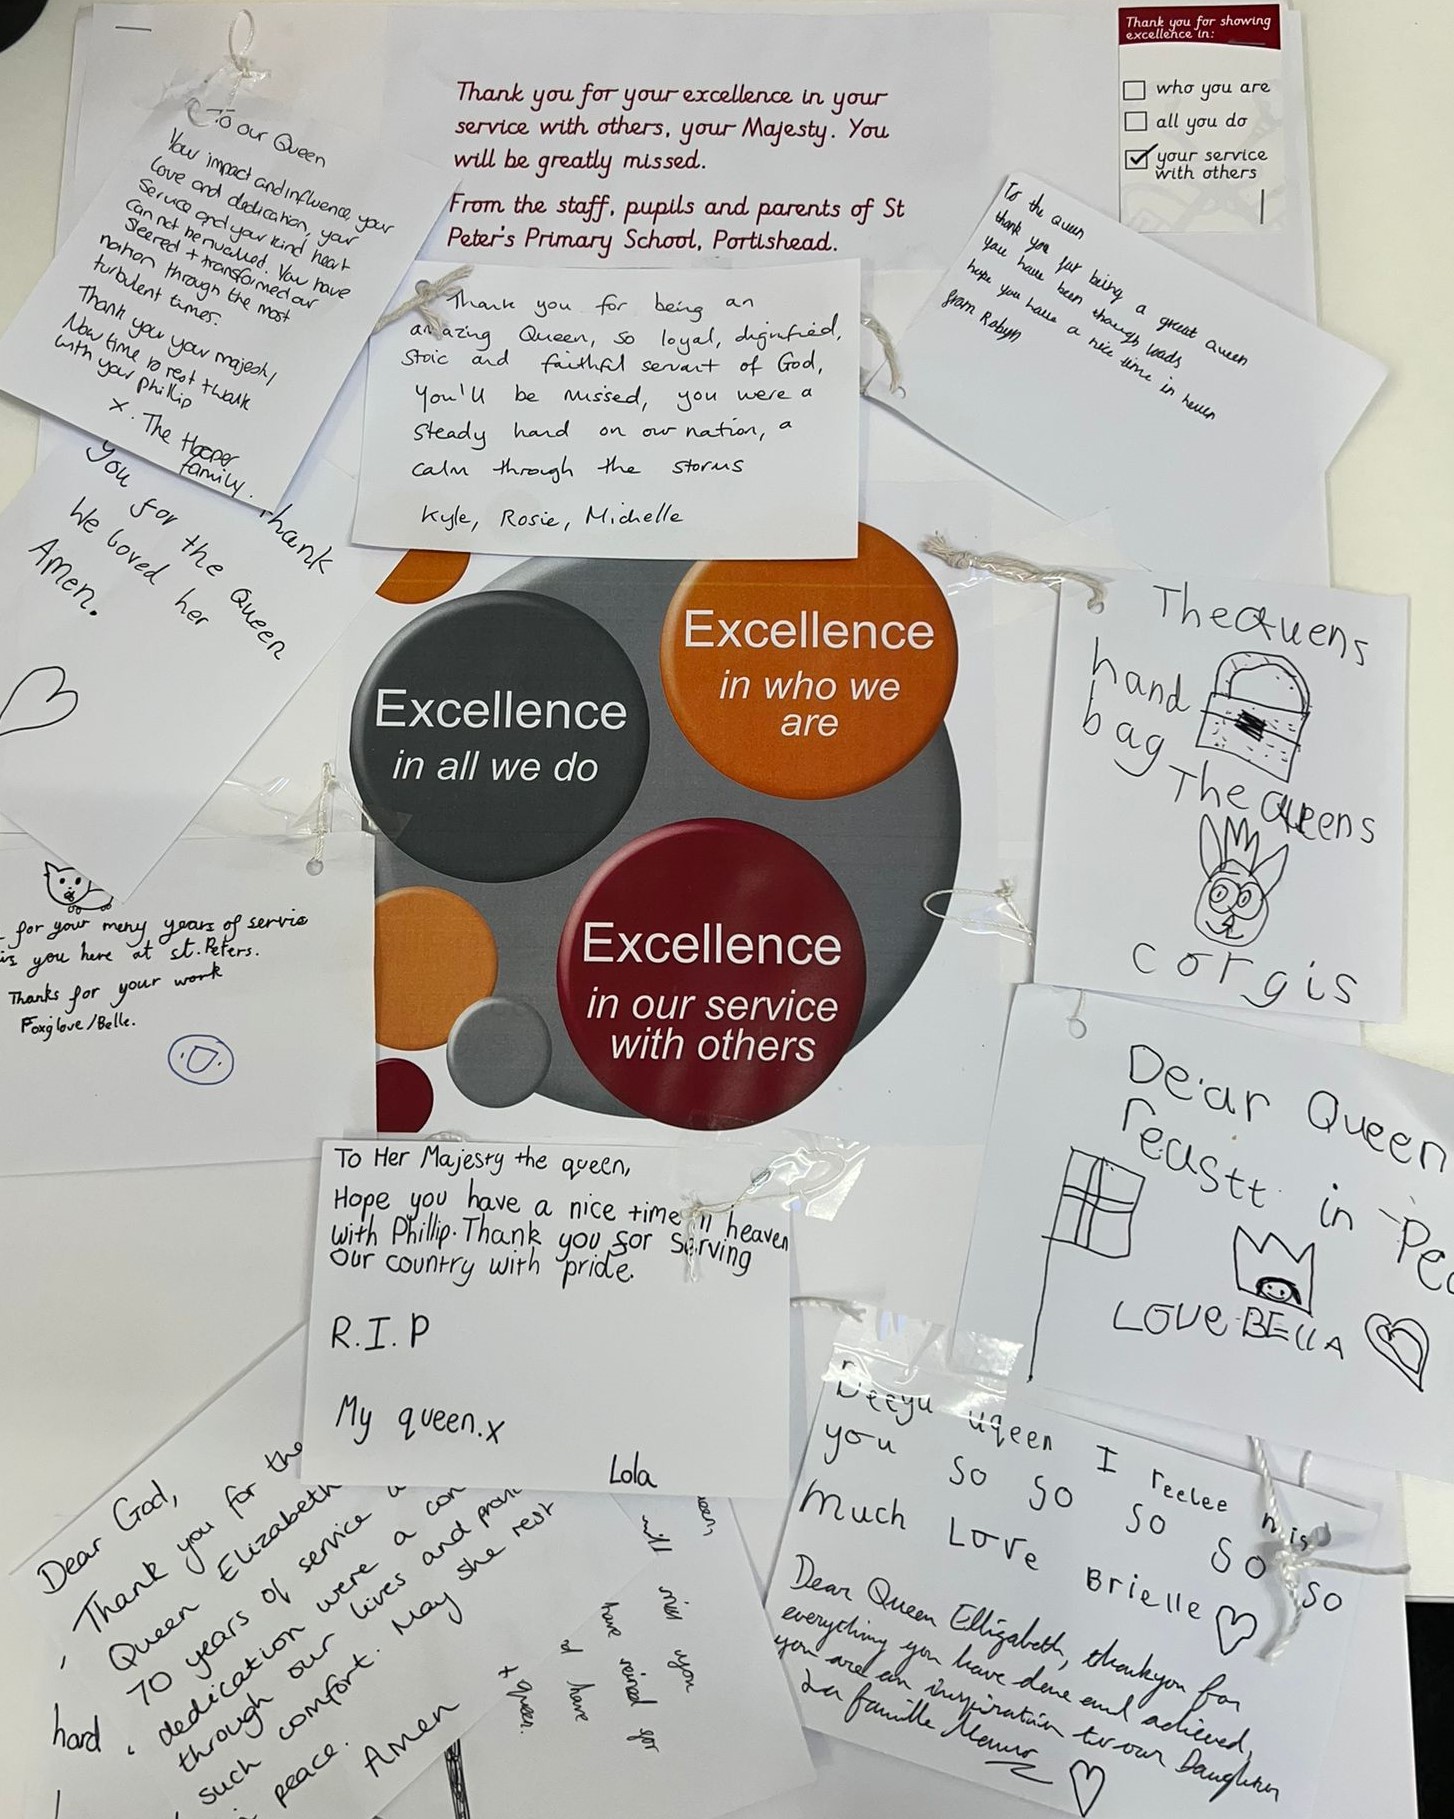 Thank you for your excellence in your
service with others, your Majesty. You
will be greatly missed.
From the staff, pupils and parents of St
Peter's Primary School, Portishead.
Thank you for showing
excellence in:
who you are
all you do
your service
with others
To our Queen
Your impact and influence, your
love and dedication, your
service and your kind heart
can not be rivalled. You have
steered + transformed our
nation through the most
turbulent times.
Thank you your majesty
Now time to rest
with your Phillip
x. The Hooper
family.
Thank you for being an
amazing Queen, so loyal, dignified,
stoic and faithful servant of God,
You'll be missed, you were a
steady hand on our nation, a
calm through the storms
Kyle, Rosie, Michelle
To the queen
thank you for being a great queen
you have been through loads
hope you have a nice time in heven
from Robyn
Thank
you for the Queen
We loved her
Amen.
Excellence
in all we do
Excellence
in who we
are
Excellence
in our service
with others
The Quens
hand
bag
The Queens
corgis
for your meny years of servis
you here at st.Peters.
Thanks for your work
Foxglove/Belle.
Dear Queen
reastt in Pea
LOVE BELLA
To Her Majesty the queen,
Hope you have a nice time in heaven
with Phillip. Thank you for serving
our country with pride.
R.I.P
My queen.x
Lola
Deeyu uqeen I reelee mis
you so so so so so
much Love Brielle
Dear Queen Elligabeth, thankyou for
everything you have done and achieved,
you are an inspiration to our Daughter
La famille
Dear God,
Thank you for the
Queen Elizabeth
70 years of service
dedication were a con
through our lives and provi
such comfort. May she rest
peace.
Amen
hard
will miss you
have reined for
have
queen.